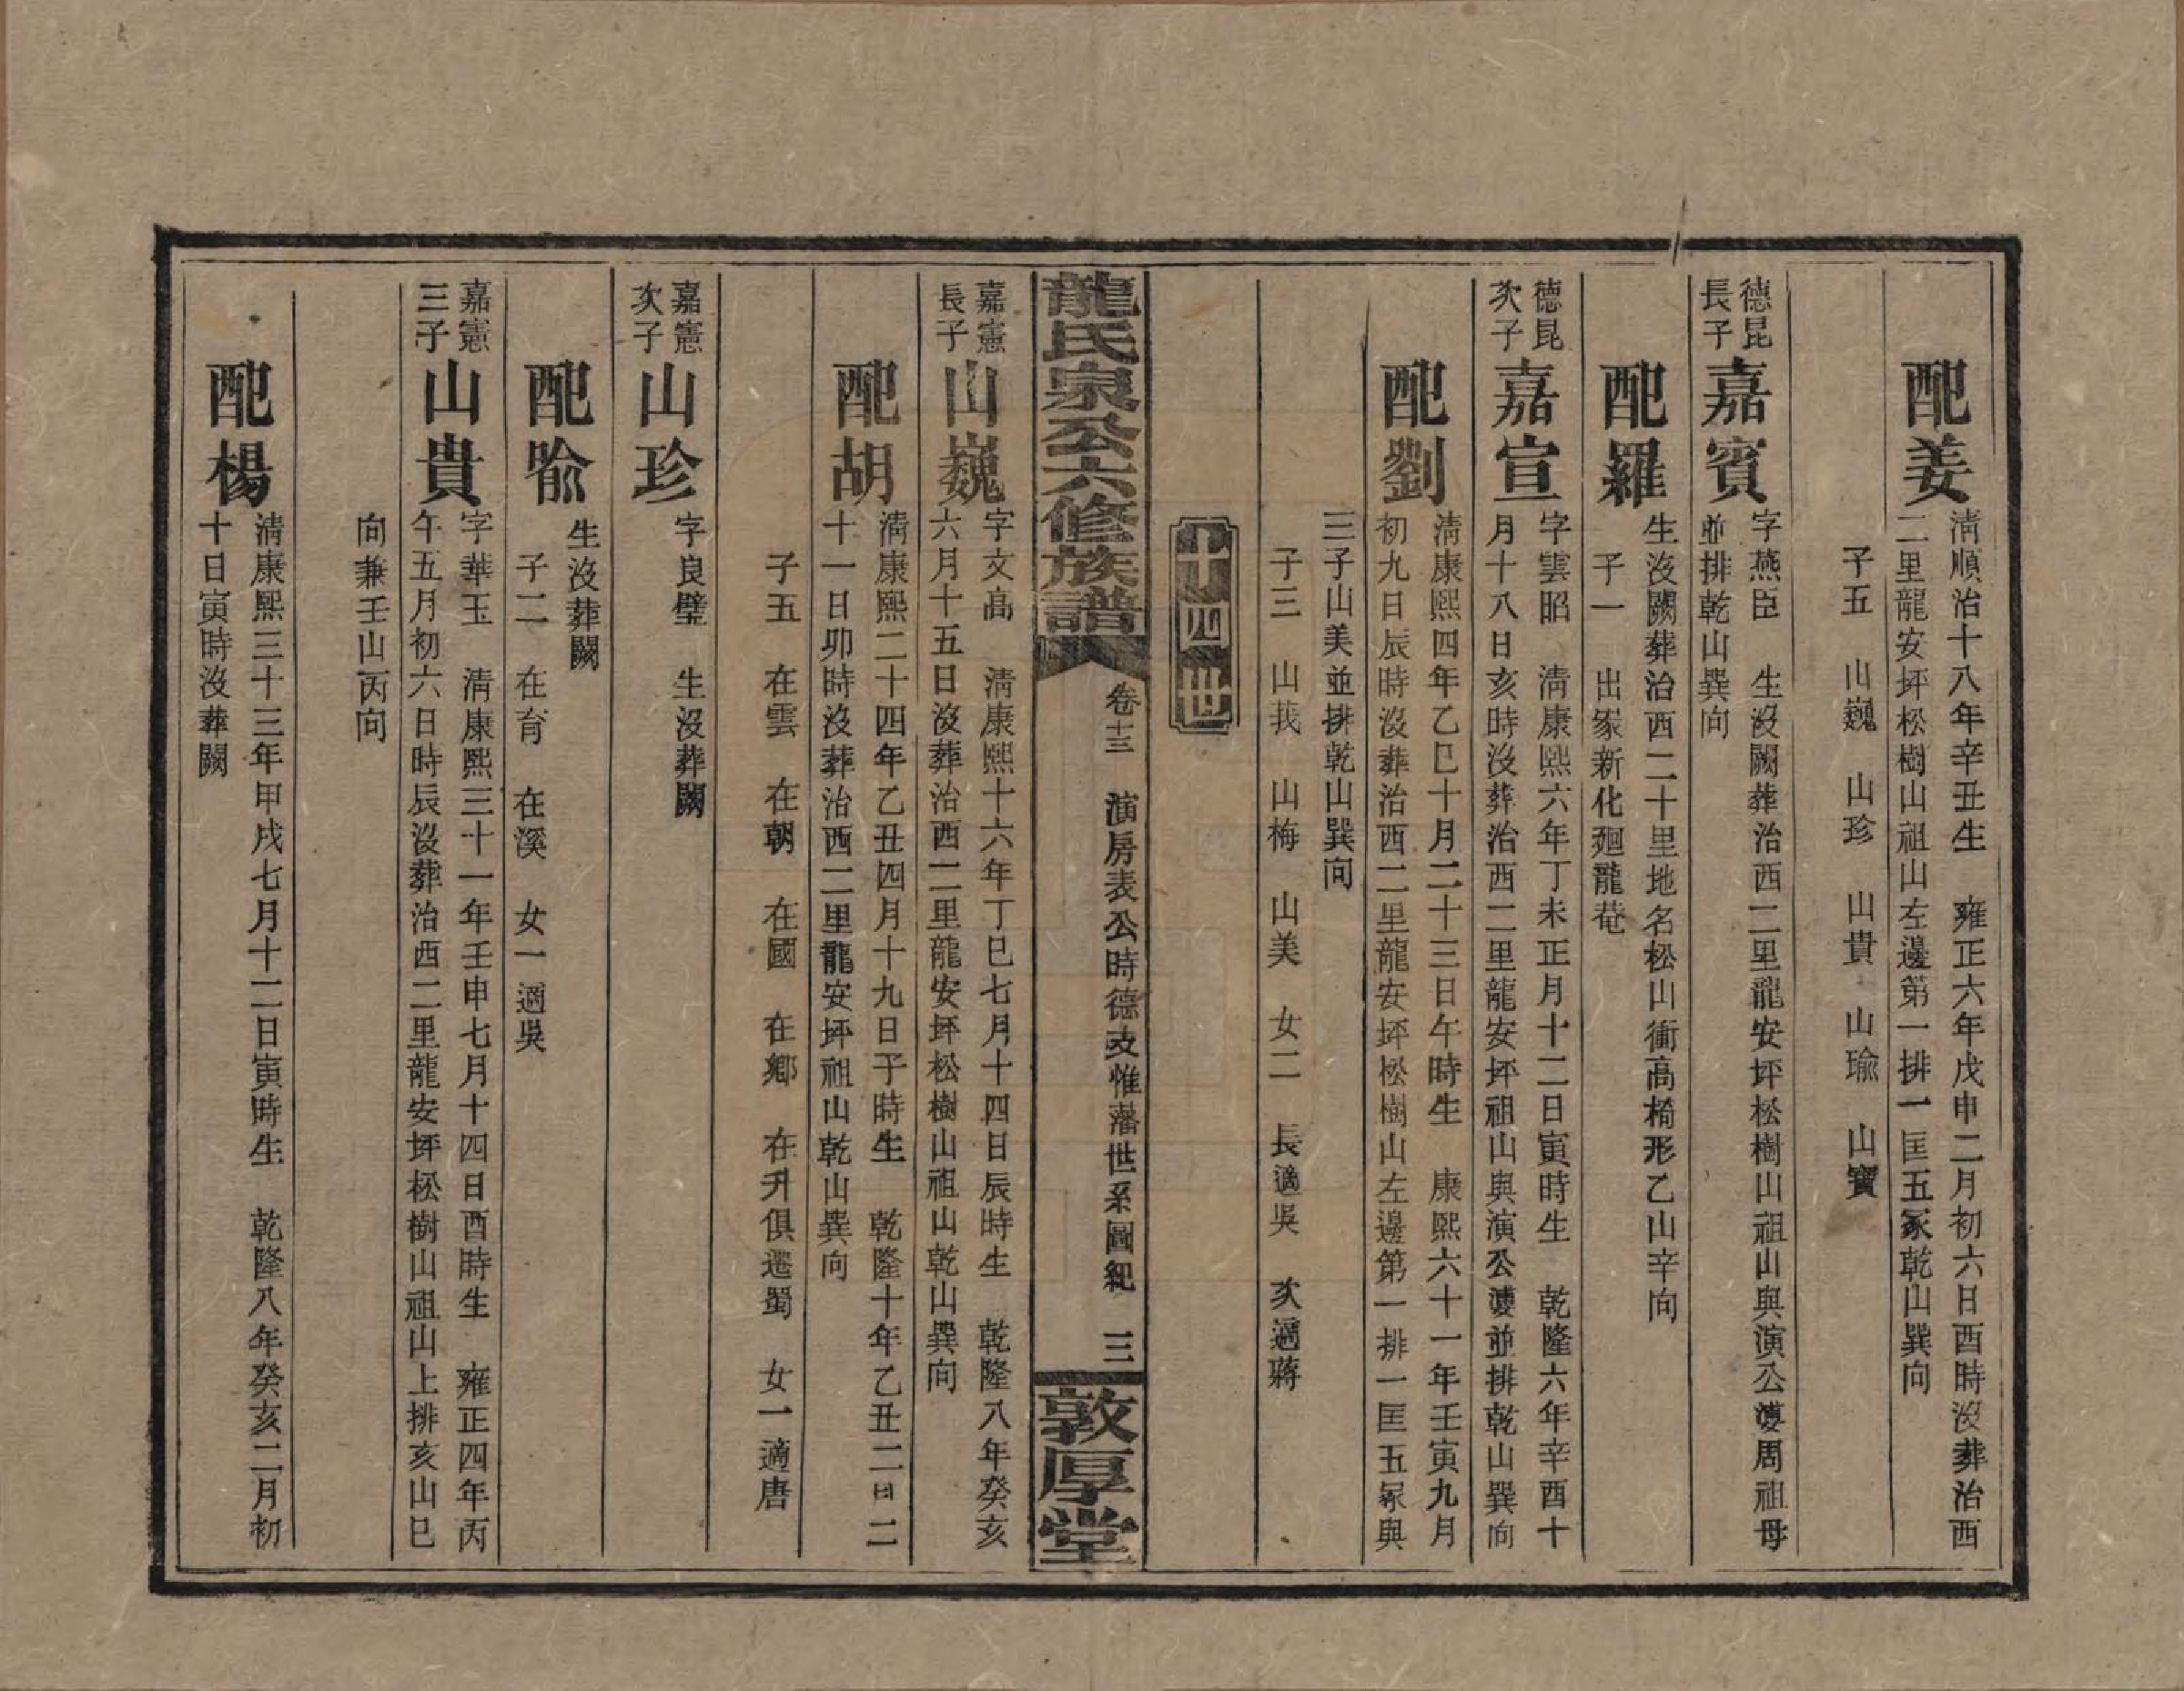 配姜
淸順治十八年辛丑生　雍正六年戊申二月初六日酉時沒葬治西
二里龍安坪松樹山祖山左邊第一排一匡五冢乾山巽向
子五　山巍　山珍　山貴　山瑜　山寶
德昆
長子
嘉賓
字燕臣　生沒闕葬治西二里龍安坪松樹山祖山與演公蔞周祖母
並排乾山巽向
配羅
生沒闕葬治西二十里地名松山衝高椅形乙山辛向
子一　出家新化廻龍菴
德昆
次子
嘉宣
字雲昭　淸康熙六年丁未正月十二日寅時生　乾隆六年辛酉十
月十八日亥時沒葬治西二里龍安坪祖山與演公蔞並排乾山巽向
配劉
淸康熙四年乙巳十月二十三日午時生　康熙六十一年壬寅九月
初九日辰時沒葬治西二里龍安坪松樹山左邊第一排一匡五冢與
三子山美並排乾山巽向
子三　山莪　山梅　山美　女二　長適吳　次適蔣
十四世
龍氏泉公六修族譜
卷十三　演房表公時德改惟藩世系圖紀　三
敦厚堂
嘉憲
長子
山巍
字文高　淸康熙十六年丁巳七月十四日辰時生　乾隆八年癸亥
六月十五日沒葬治西二里龍安坪松樹山祖山乾山巽向
配胡
淸康熙二十四年乙丑四月十九日子時生　乾隆十年乙丑二月二
十一日卯時沒葬治西二里龍安坪祖山乾山巽向
子五　在雲　在朝　在國　在鄉　在升俱遷蜀　女一適唐
嘉憲
次子
山珍
字良璧　生沒葬闕
配喩
生沒葬闕
子二　在育　在溪　女一適吳
嘉憲
三子
山貴
字華玉　淸康熙三十一年壬申七月十四日酉時生　雍正四年丙
午五月初六日時辰沒葬治西二里龍安坪松樹山祖山上排亥山巳
向兼壬山丙向
配楊
淸康熙三十三年甲戌七月十二日寅時生　乾隆八年癸亥二月初
十日寅時沒葬闕